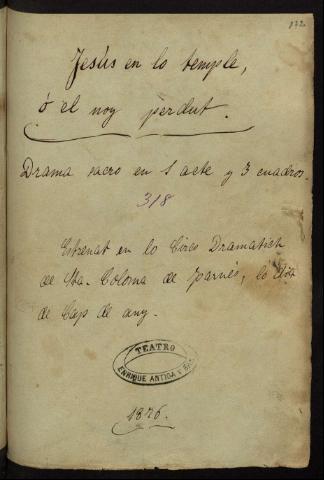 172
Jesús en lo temple,
ó el noy perdut.
Drama sacro en 1 acte y 3 cuadros.
318
Estrenat en lo Circo Dramatich
de Sta. Coloma de Farnés, lo dia
de Cap de any.
TEATRO
ENRIQUE ANTIGA Y
1876.